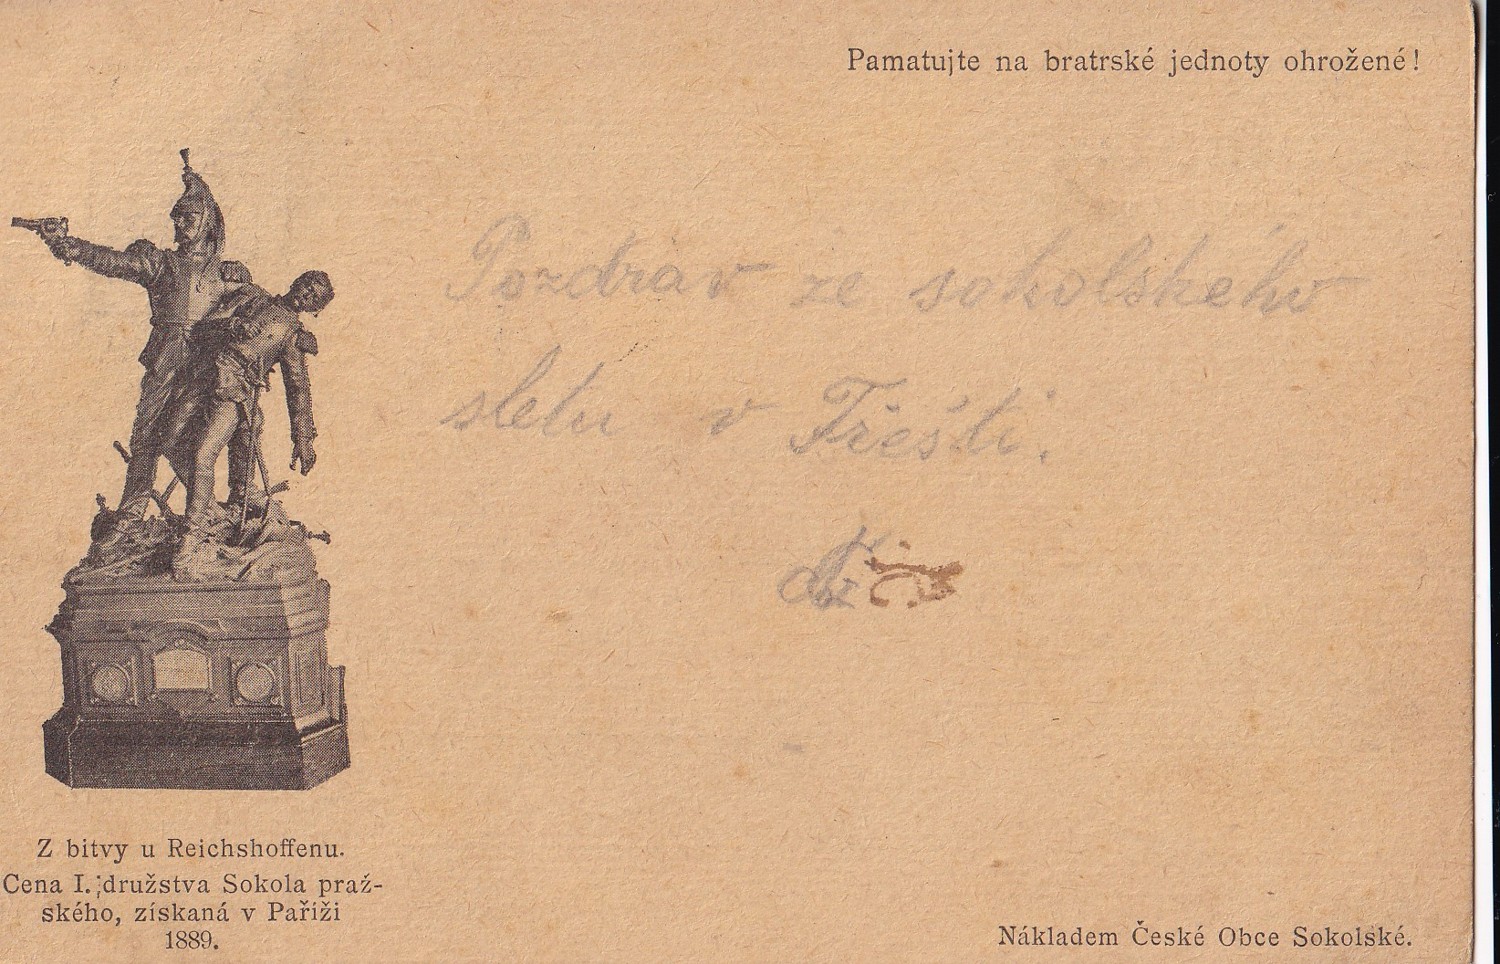 Pamatujte na bratrské jednoty ohrožené!
Pozdrav ze sokolského
sletu v Třešti.
Z bitvy u Reichshoffenu.
Cena I. družstva Sokola praž-
ského, získaná v Paříži
1889.
Nákladem České Obce Sokolské.